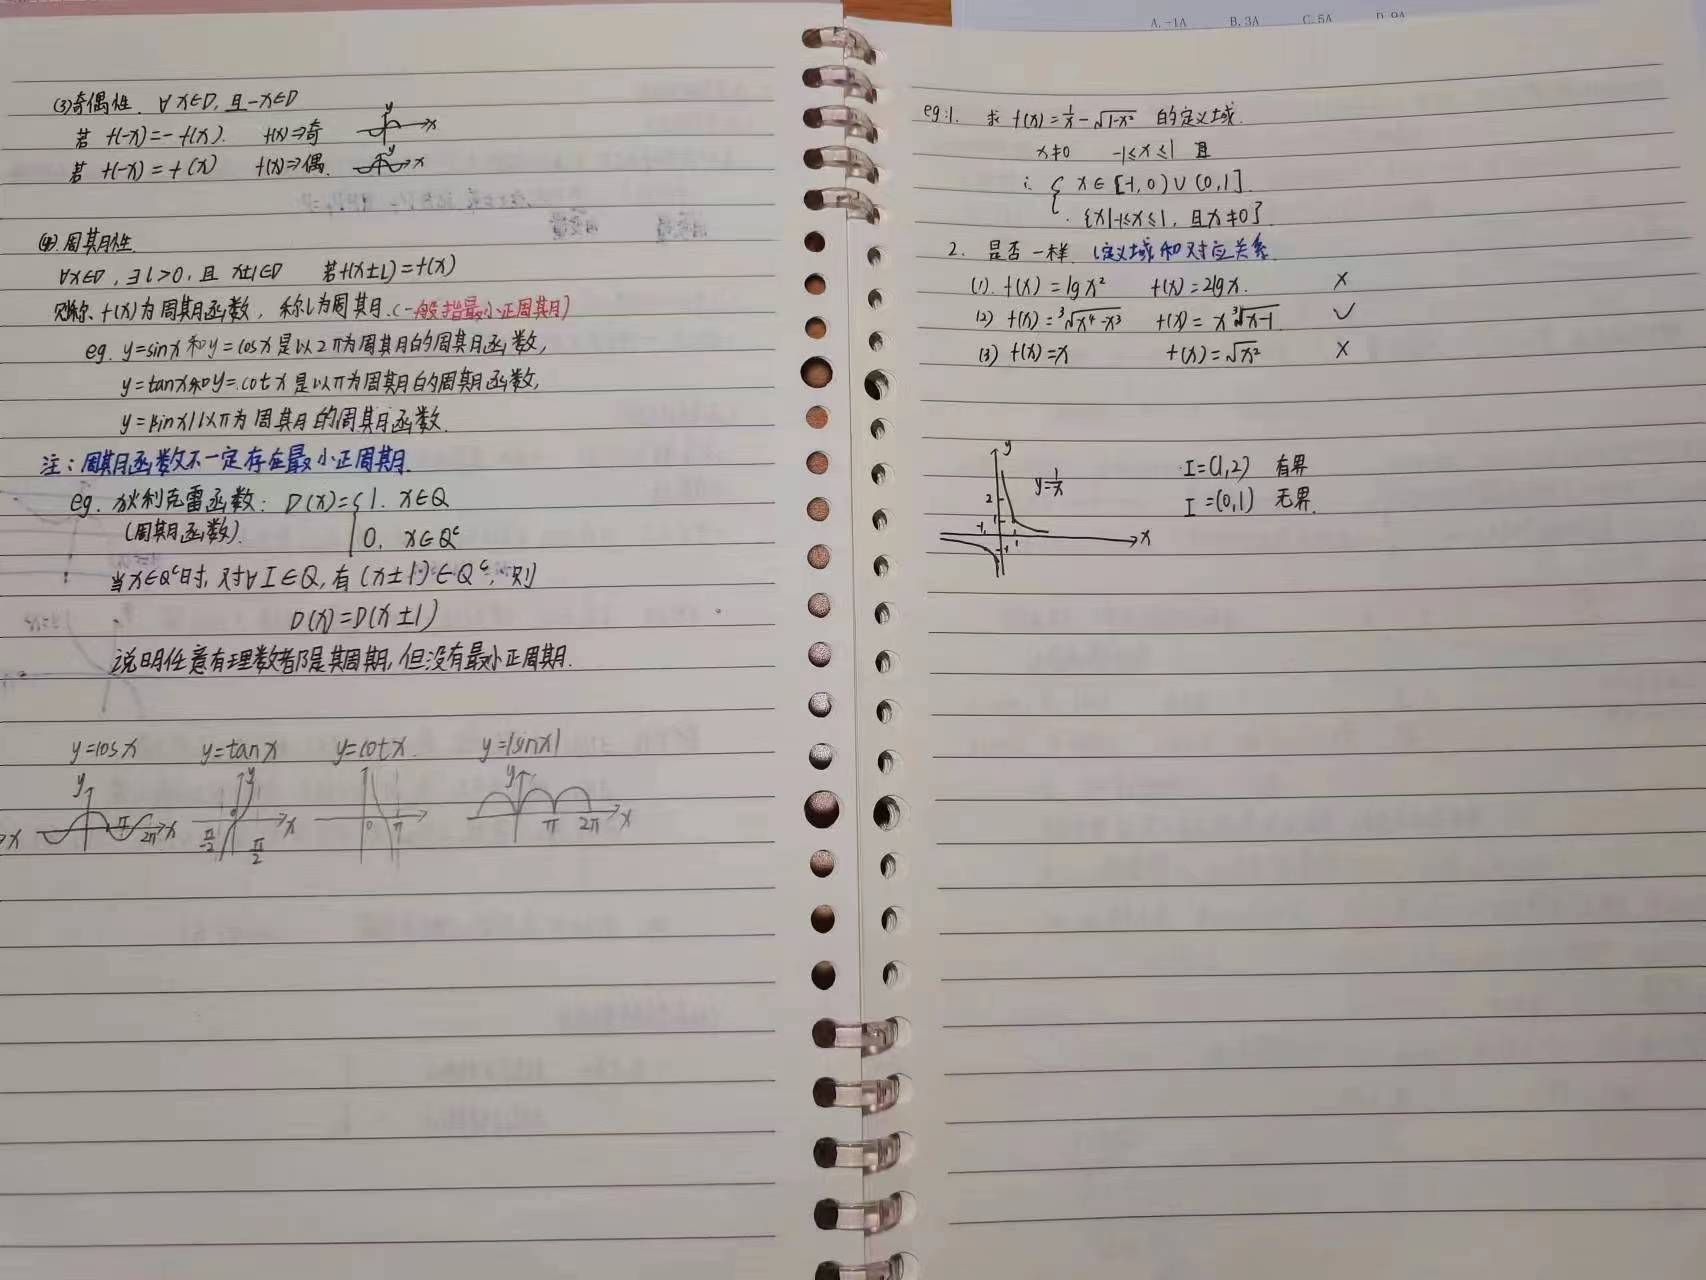 A. -1A B. 3A C. 5A D. 9A
(3)奇偶性. ∀x∈D, 且-x∈D
若 f(-x)=-f(x). f(x)⇒奇 y x
若 f(-x)=f(x) f(x)⇒偶. y x
(4).周期性
∀x∈D, ∃l>0, 且 x±l∈D 若f(x±l)=f(x)
则称 f(x)为周期函数, 称l为周期.(一般指最小正周期)
eg. y=sinx和y=cosx是以2π为周期的周期函数,
y=tanx和y=cotx是以π为周期的周期函数,
y=|sinx|以π为周期的周期函数.
注:周期函数不一定存在最小正周期.
eg. 狄利克雷函数: D(x)={1. x∈Q
(周期函数). 0, x∈Qᶜ
当x∈Qᶜ时, 对∀I∈Q, 有(x±1)∈Qᶜ, 则
D(x)=D(x±1)
说明任意有理数都是其周期,但没有最小正周期.
y=cosx y=tanx y=cotx. y=|sinx|
y π 2π x
y 0 x -π/2 π/2
0 π
y π 2π x
x
eg:1. 求 f(x)=1/x-√(1-x²) 的定义域.
x≠0 -1≤x≤1 且
∴ { x∈[-1,0)∪(0,1].
{x|-1≤x≤1, 且x≠0}
2. 是否一样. (定义域和对应关系
(1). f(x)=lgx² f(x)=2lgx. ×
(2) f(x)=³√(x⁴-x³) f(x)=x³√(x-1) ✓
(3) f(x)=x f(x)=√x² ×
y y=1/x I=(1,2) 有界
2 I=(0,1) 无界.
-1 1 1 x
-1